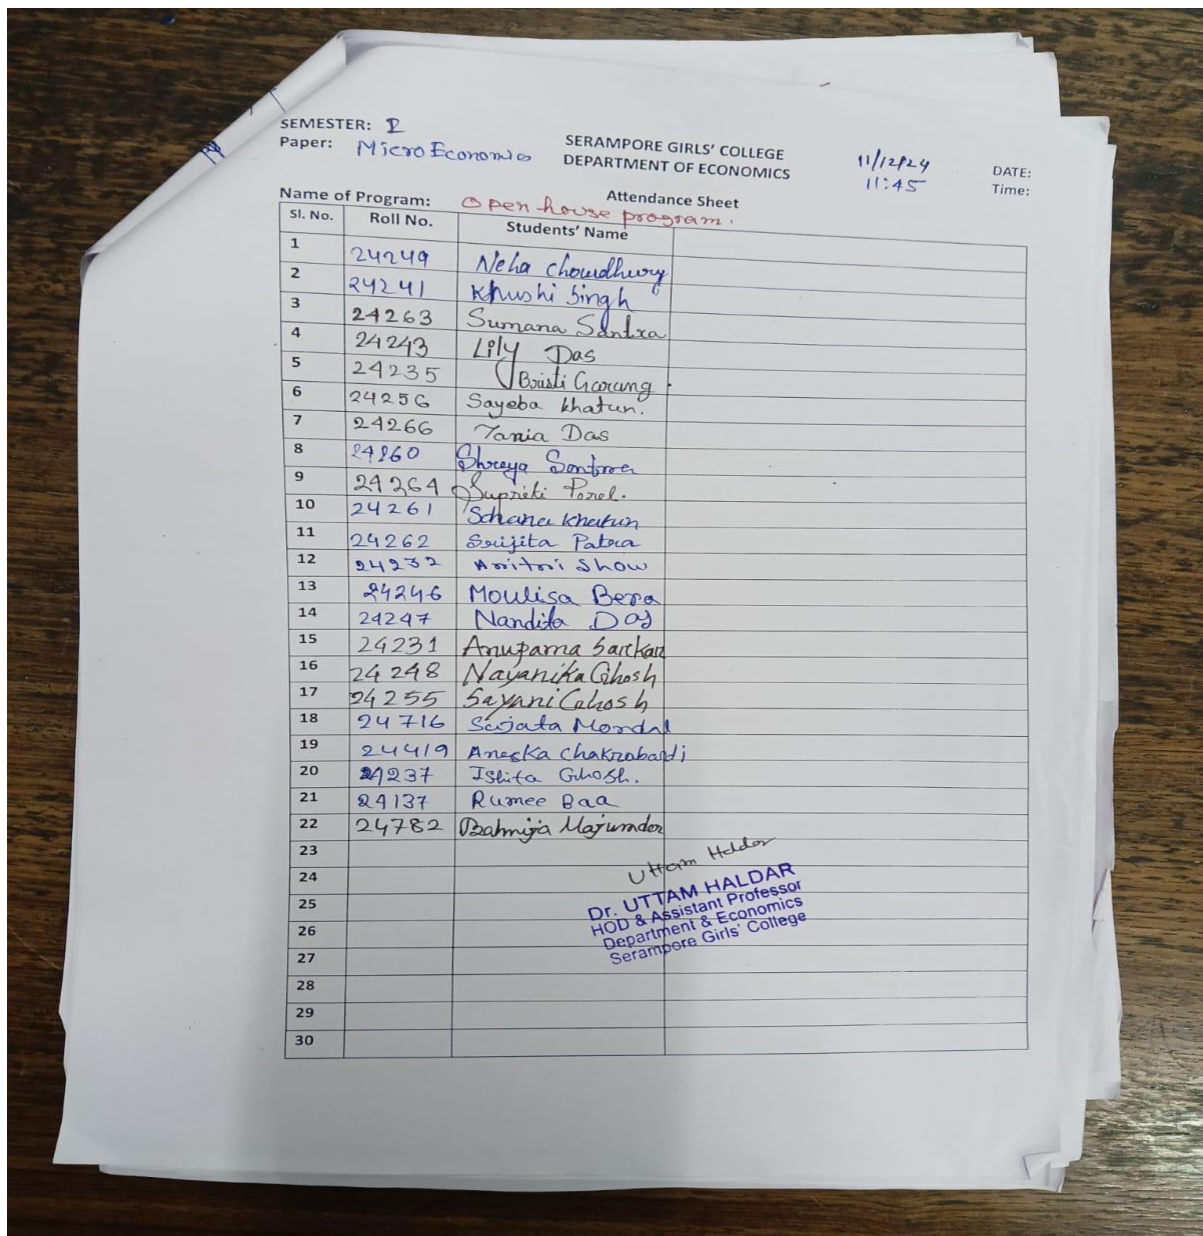 SEMESTER: I
Paper: Micro Economics
SERAMPORE GIRLS' COLLEGE
DEPARTMENT OF ECONOMICS
11/12/24
11:45
DATE:
Time:
Attendance Sheet
Name of Program: Open house program.
Sl. No. Roll No. Students' Name
1 24249 Neha Choudhury
2 24241 Khushi Singh
3 24263 Sumana Santra
4 24243 Lily Das
5 24235 Bristi Garung
6 24256 Sayeba Khatun.
7 24266 Tania Das
8 24260 Shreya Santra
9 24264 Supriti Porel.
10 24261 Sohana Khatun
11 24262 Srijita Patra
12 24232 Aritri Show
13 24246 Moulisa Bera
14 24247 Nandita Das
15 24231 Anupama Sarkar
16 24248 Nayanika Ghosh
17 24255 Sayani Ghosh
18 24716 Sujata Mondal
19 24419 Aneska Chakrobarti
20 24237 Ishita Ghosh.
21 24137 Rumee Baa
22 24782 Majumder
23
24
25
26
27
28
29
30
Uttam Haldar
Dr. UTTAM HALDAR
HOD & Assistant Professor
Department & Economics
Serampore Girls' College